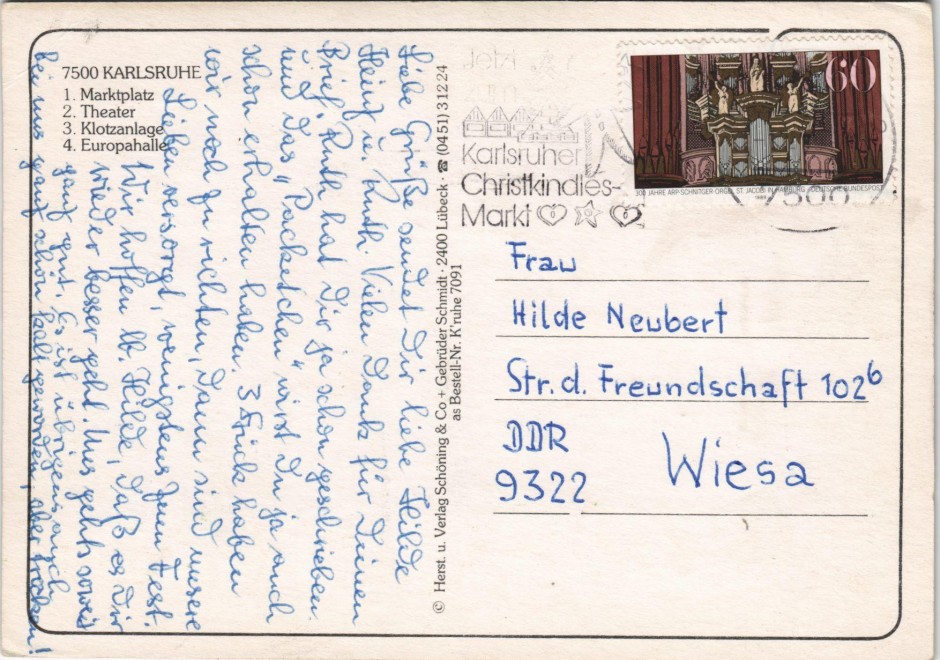 7500 KARLSRUHE
1. Marktplatz
2. Theater
3. Klotzanlage
4. Europahalle
Liebe Grüße sendet Dir liebe Hilde
Heinz u. Ruth. Vielen Dank für Deinen
Brief. Ruth hat Dir ja schon geschrieben
und das "Packetchen" wirst Du ja auch
schon erhalten haben. 3 Stück haben
wir noch zu richten, dann sind unsere
Lieben versorgt, wenigstens zum Fest.
Wir hoffen lb. Hilde, daß es Dir
wieder besser geht. Uns geht's soweit
ganz gut. Es ist übrigens auch
bei uns ganz schön kalt geworden, aber trocken!
© Herst. u. Verlag Schöning & Co + Gebrüder Schmidt · 2400 Lübeck · ☎ (0451) 31224
as Bestell-Nr. K'ruhe 7091
Jetzt
Karlsruher
Christkindles-
Markt
60
300 JAHRE ARP-SCHNITGER-ORGEL ST. JACOBI IN HAMBURG · DEUTSCHE BUNDESPOST
1989
7500
Frau
Hilde Neubert
Str. d. Freundschaft 102b
DDR
9322 Wiesa